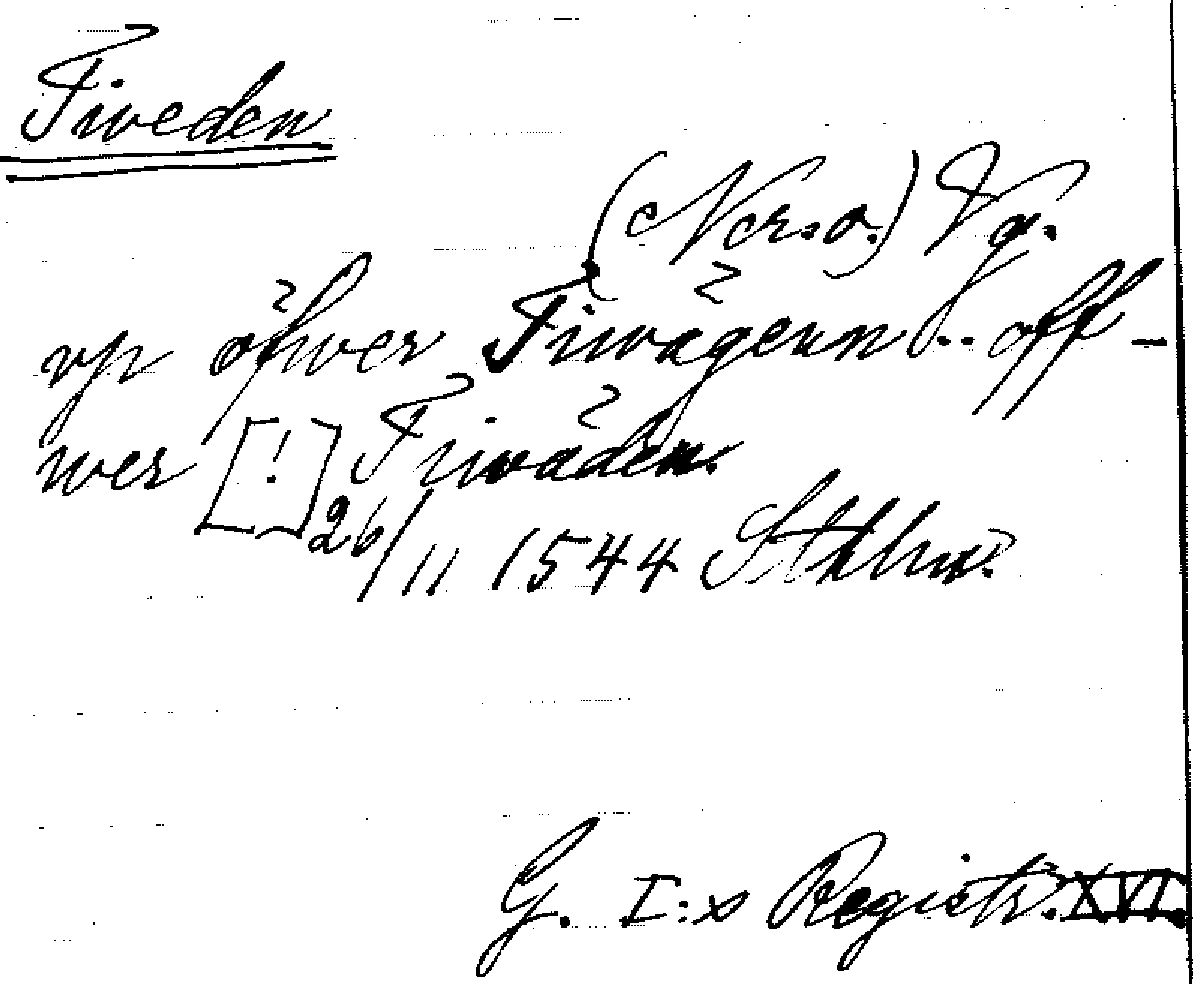 Tiveden
(Ner. o.) Vg.
vp öhwer Tiwägenn .. öff-
wer [!] Tiwäden.
26/11 1544 Sthlm.
G. I:s Registr. XVI.